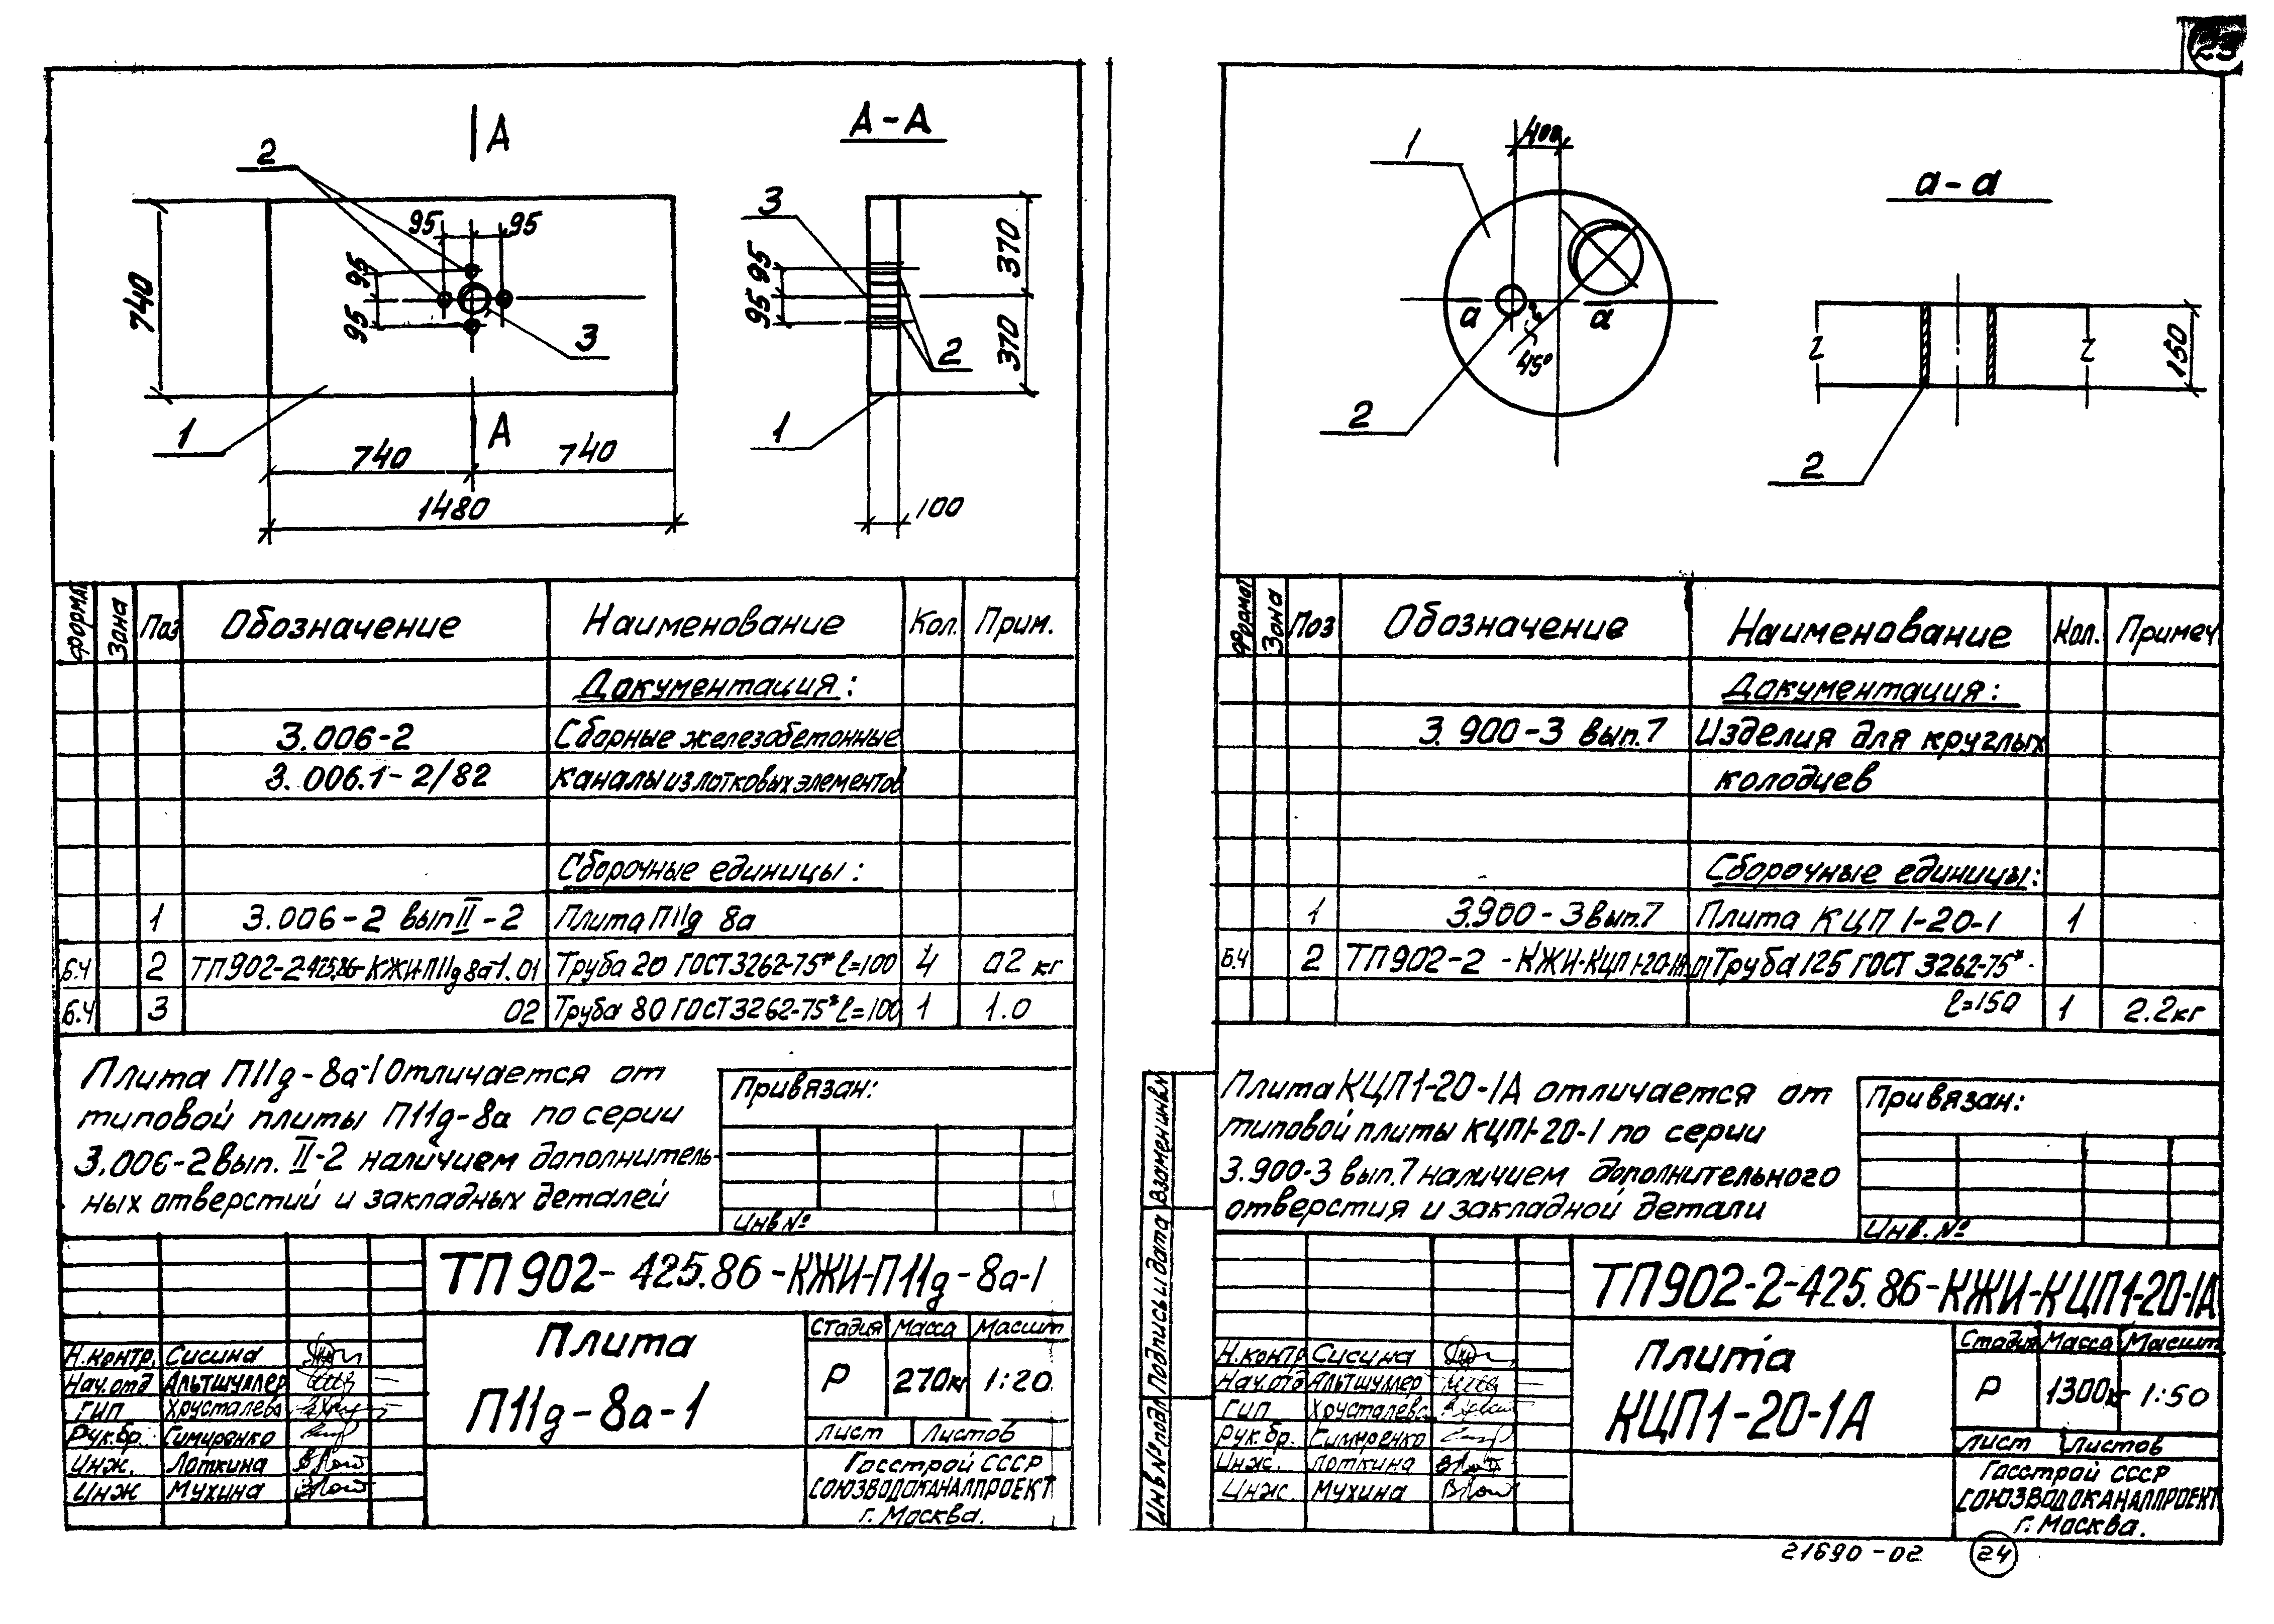 А
А-А
2
95
95
3
740
95
95
95
95
370
370
3
2
1
А
1
740
740
1480
100
Формат
Зона
Поз
Обозначение
Наименование
Кол.
Прим.
Документация:
3.006-2
Сборные железобетонные
3.006.1-2/82
каналы из лотковых элементов
Сборочные единицы:
1
3.006-2 вып II-2
Плита П11д 8а
Б.Ч
2
ТП902-2-425.86-КЖИ-П11д8а-1.01
Труба 20 ГОСТ 3262-75* ℓ=100
4
02 кг
Б.Ч
3
02
Труба 80 ГОСТ 3262-75* ℓ=100
1
1.0
Плита П11д-8а-1 Отличается от
типовой плиты П11д-8а по серии
3.006-2 вып. II-2 наличием дополнитель-
ных отверстий и закладных деталей
Привязан:
Инв №
ТП902-425.86-КЖИ-П11д-8а-1
Плита
П11д-8а-1
Стадия
Масса
Масшт
Р
270кг
1:20
Лист
Листов
Госстрой СССР
СОЮЗВОДОКАНАЛПРОЕКТ
г. Москва.
Н.контр.
Сисина
Нач.отд
Альтшуллер
ГИП
Хрусталева
Рук.бр.
Симиренко
Инж.
Лоткина
Инж
Мухина
23
1
400
а-а
а
а
45°
2
150
2
Формат
Зона
Поз
Обозначение
Наименование
Кол.
Примеч
Документация:
3.900-3 вып.7
Изделия для круглых
колодцев
Сборочные единицы:
1
3.900-3 вып.7
Плита КЦП 1-20-1
1
Б.Ч
2
ТП902-2 -КЖИ-КЦП1-20-1А.01
Труба 125 ГОСТ 3262-75*
ℓ=150
1
2.2кг
Плита КЦП1-20-1А отличается от
типовой плиты КЦП1-20-1 по серии
3.900-3 вып.7 наличием дополнительного
отверстия и закладной детали
Привязан:
Инв. №
Взамен инв.№
Подпись и дата
Инв № подл
ТП902-2-425.86-КЖИ-КЦП1-20-1А
Плита
КЦП1-20-1А
Стадия
Масса
Масшт
Р
1300кг
1:50
Лист
Листов
Госстрой СССР
СОЮЗВОДОКАНАЛПРОЕКТ
г. Москва.
Н.контр
Сисина
Нач.отд
Альтшуллер
ГИП
Хрусталева
Рук.бр.
Симиренко
Инж.
Лоткина
Инж.
Мухина
21690-02
24